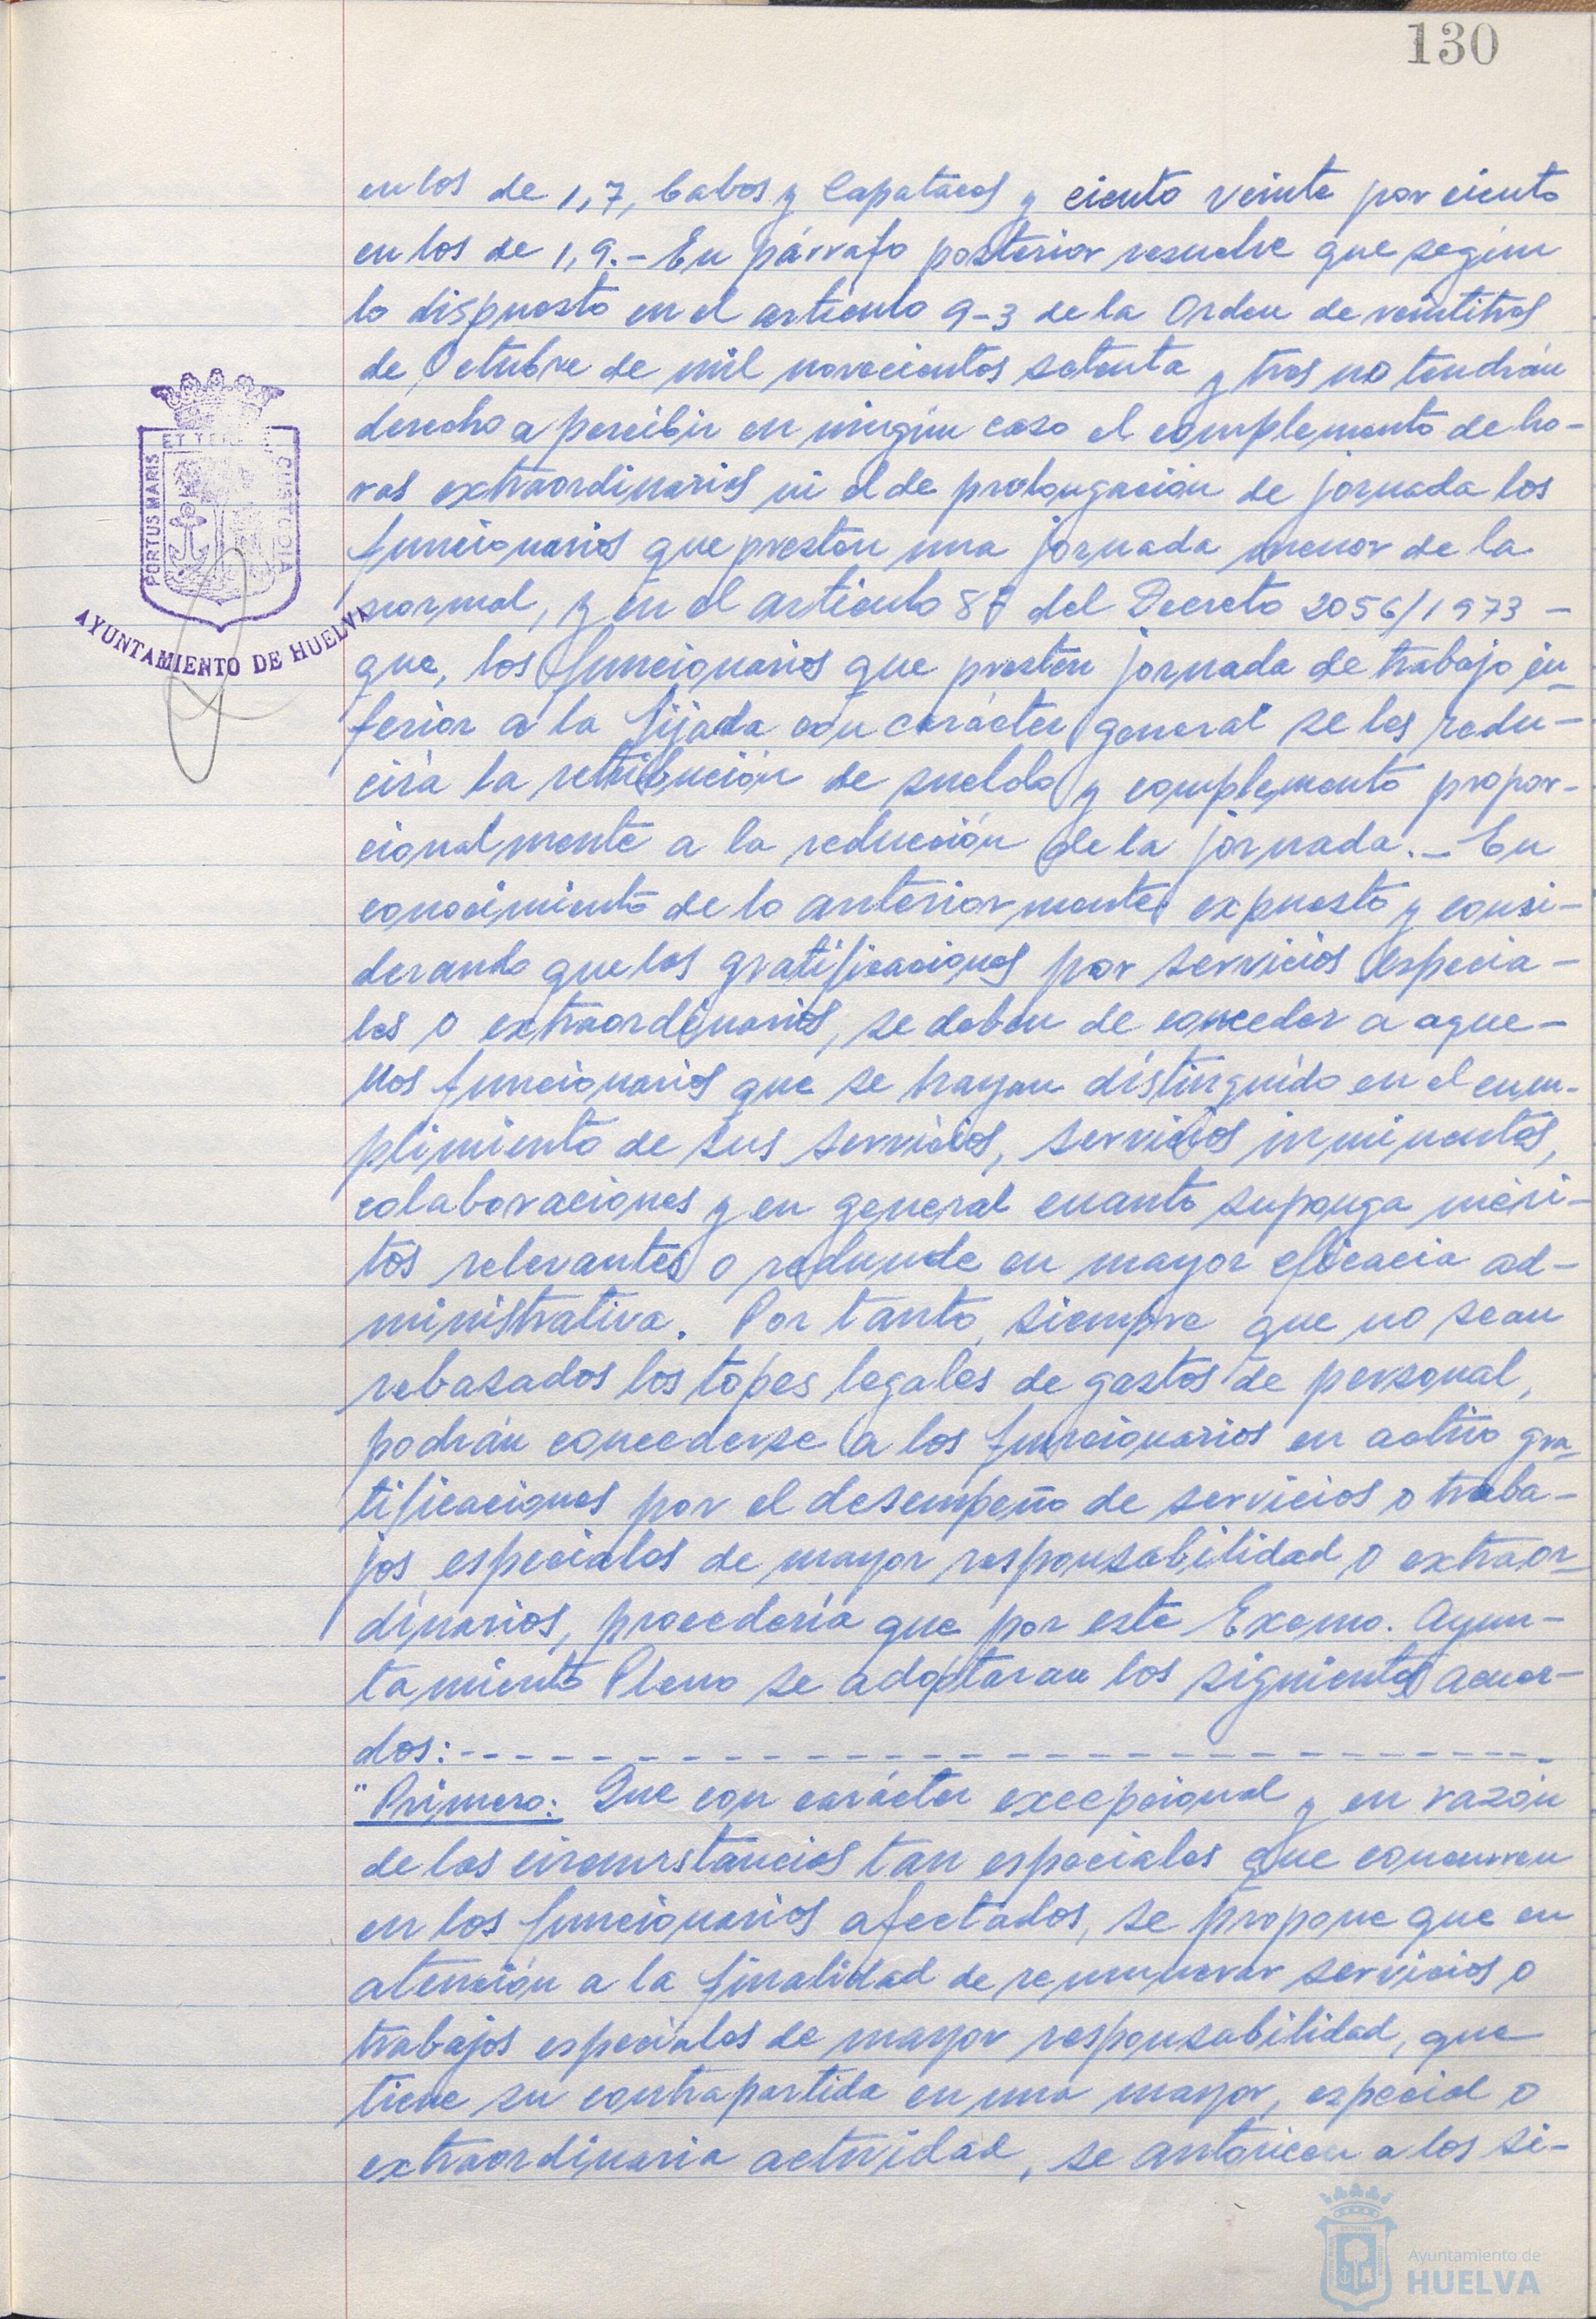 130
en los de 1,7, Cabos y Capataces y ciento veinte por ciento
en los de 1,9.- En párrafo posterior resuelve que según
lo dispuesto en el artículo 9-3 de la Orden de veintitres
de Octubre de mil novecientos setenta y tres no tendrán
derecho a percibir en ningún caso el complemento de ho-
ras extraordinarias ni el de prolongación de jornada los
funcionarios que presten una jornada menor de la
normal, y en el artículo 8º del Decreto 2056/1973 -
que, los funcionarios que presten jornada de trabajo in-
ferior a la fijada con carácter general se les redu-
cirá la retribución de sueldo y complemento propor-
cionalmente a la reducción de la jornada.- En
conocimiento de lo anteriormente expuesto y consi-
derando que las gratificaciones por servicios especia-
les o extraordinarios, se deben de conceder a aque-
llos funcionarios que se hayan distinguido en el cum-
plimiento de sus servicios, servicios inminentes,
colaboraciones y en general cuanto suponga méri-
tos relevantes o redunde en mayor eficacia ad-
ministrativa. Por tanto, siempre que no sean
rebasados los topes legales de gastos de personal,
podrán concederse a los funcionarios en activo gra-
tificaciones por el desempeño de servicios o traba-
jos especiales de mayor responsabilidad o extraor-
dinarios, procedería que por este Excmo. Ayun-
tamiento Pleno se adoptaran los siguientes acuer-
dos:- - - - - - - - - - - - - - - - - - - - - - - - - - -
"Primero: Que con carácter excepcional y en razón
de las circunstancias tan especiales que concurren
en los funcionarios afectados, se propone que en
atención a la finalidad de remunerar servicios o
trabajos especiales de mayor responsabilidad, que
tiene su contrapartida en una mayor, especial o
extraordinaria actividad, se autoricen a los si-
PORTUS MARIS ET TERRE CUSTODIA
AYUNTAMIENTO DE HUELVA
Ayuntamiento de
HUELVA